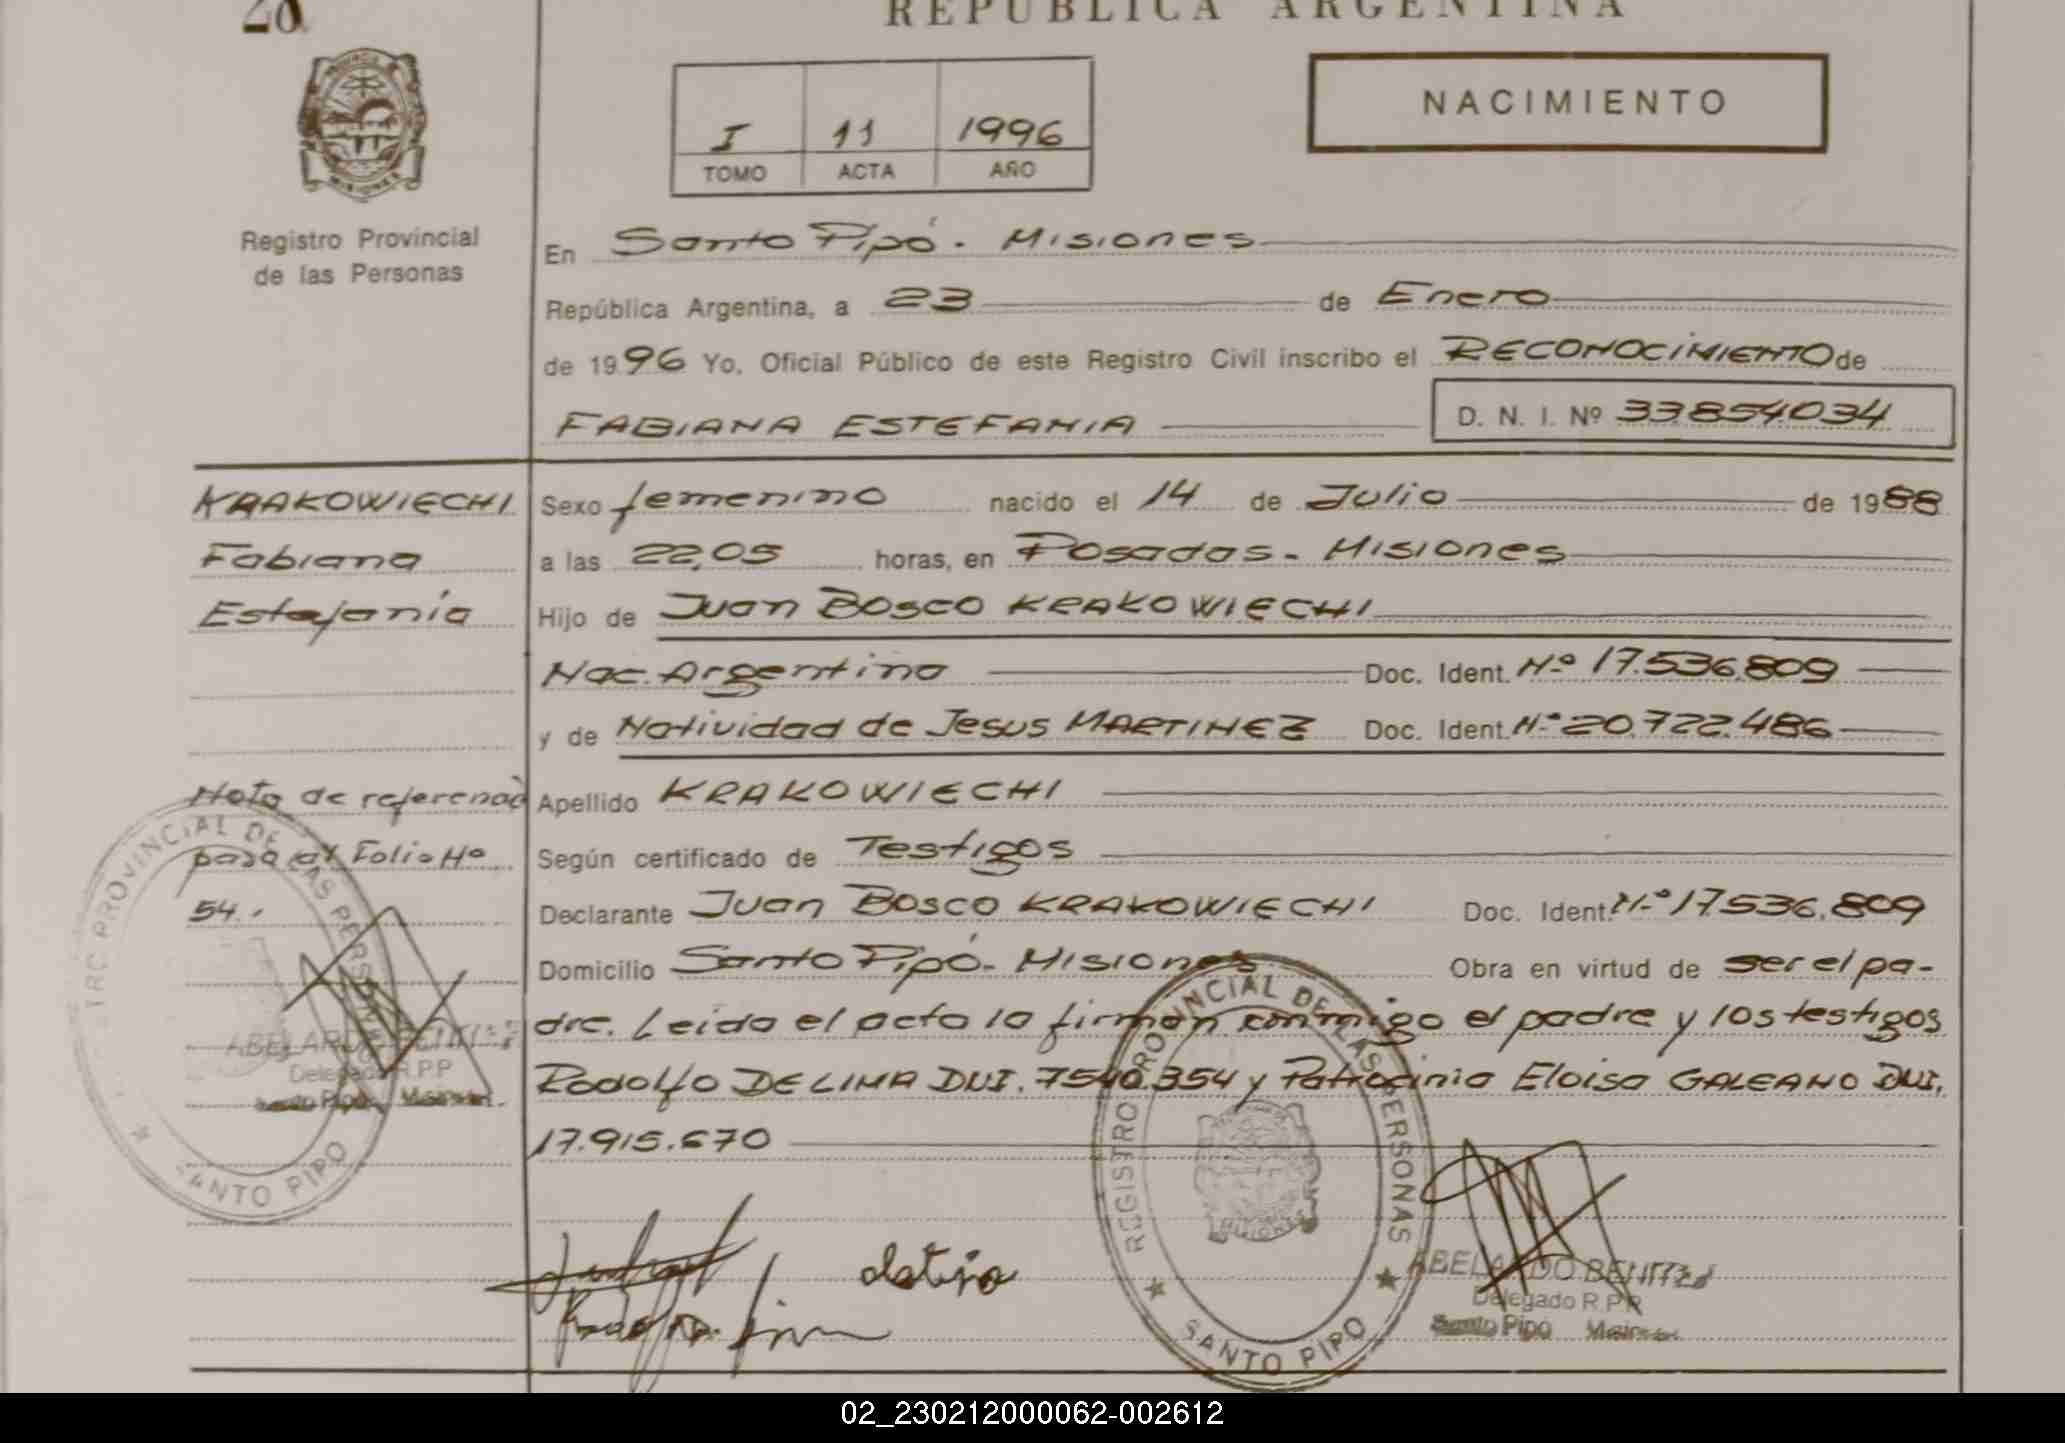 20
REPUBLICA ARGENTINA
PROVINCIA DE MISIONES
NACIMIENTO
I 11 1996
TOMO ACTA AÑO
Registro Provincial
de las Personas
En Santo Pipó. Misiones
República Argentina, a 23 de Enero
de 1996 Yo, Oficial Público de este Registro Civil inscribo el RECONOCIMIENTO de
FABIANA ESTEFANIA D. N. I. Nº 33.854.034
KRAKOWIECHI
Fabiana
Estefanía
Sexo femenino nacido el 14 de Julio de 1988
a las 22,05 horas, en Posadas - Misiones
Hijo de Juan Bosco KRAKOWIECHI
Nac. Argentina Doc. Ident. Nº 17.536.809
y de Natividad de Jesus MARTINEZ Doc. Ident. Nº 20.722.486
Nota de referencia
pasa al Folio Nº
54.
Apellido KRAKOWIECHI
Según certificado de Testigos
Declarante Juan Bosco KRAKOWIECHI Doc. Ident. Nº 17.536.809
Domicilio Santo Pipó - Misiones Obra en virtud de ser el pa-
dre. Leida el acta la firman conmigo el padre y los testigos
Rodolfo DE LIMA DNI. 7540.354 y Patrocinia Eloisa GALEANO DNI.
17.915.670
REGISTRO PROVINCIAL DE LAS PERSONAS
SANTO PIPO
ABELARDO BENITEZ
Delegado R.P.P
Santo Pipó Misiones
REGISTRO PROVINCIAL DE LAS PERSONAS
MISIONES
SANTO PIPO
ABELARDO BENITEZ
Delegado R.P.P
Santo Pipó Misiones
02_230212000062-002612